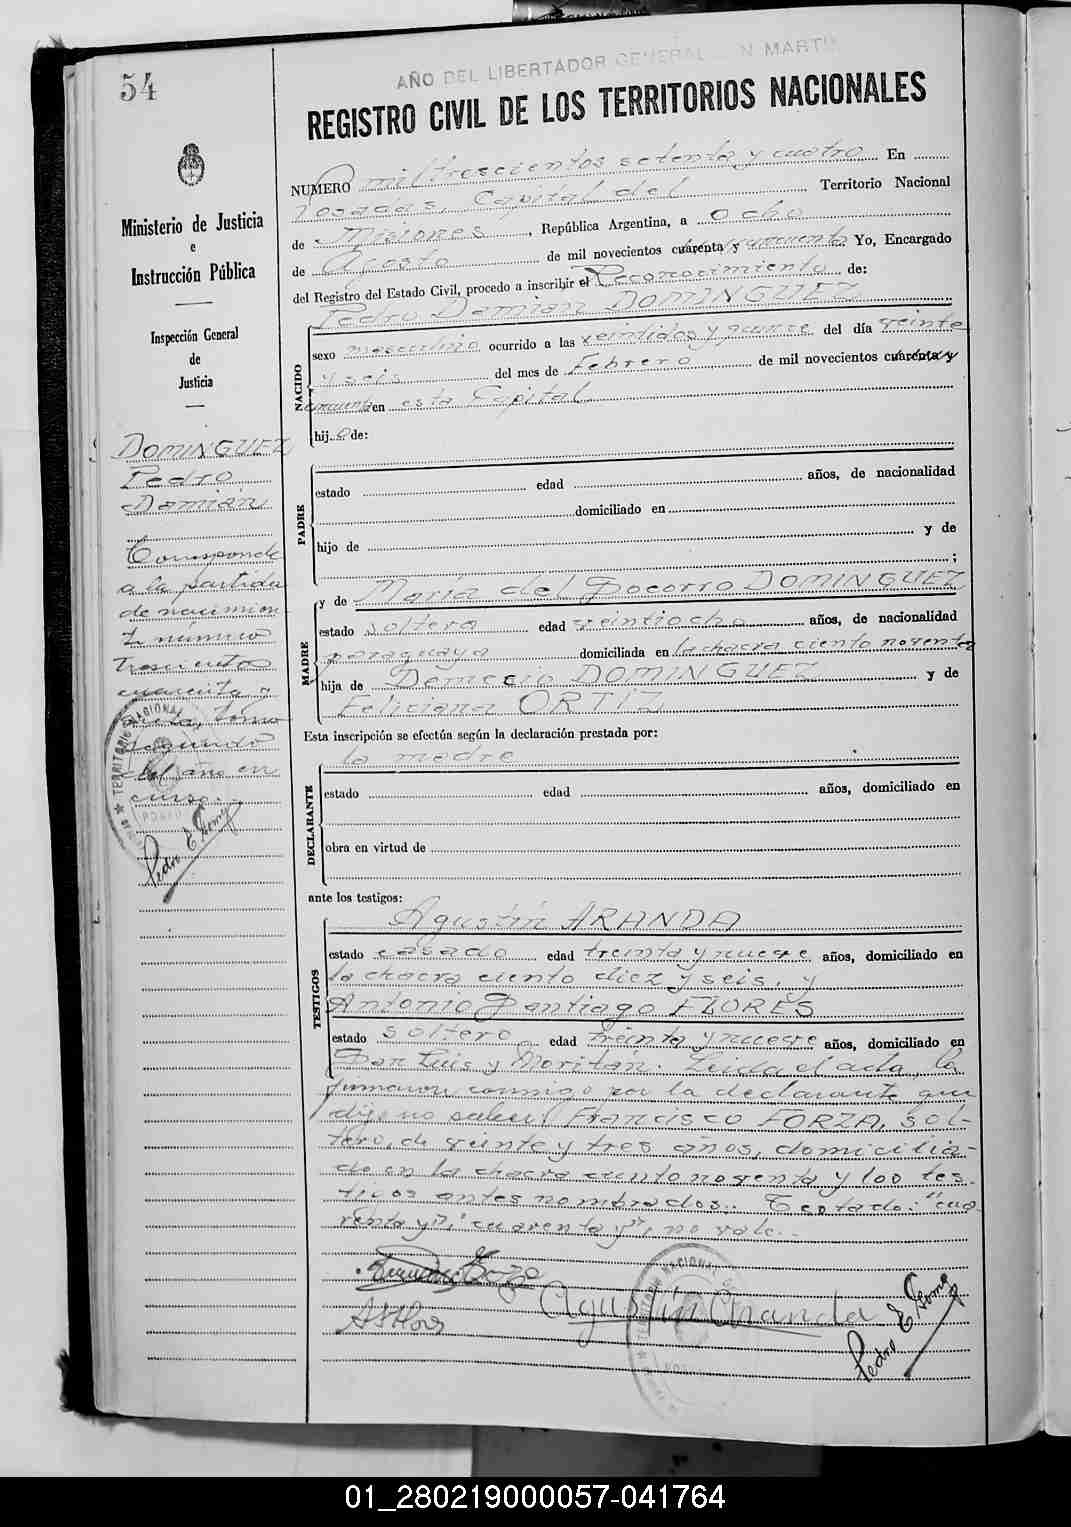 54
AÑO DEL LIBERTADOR GENERAL SAN MARTIN
REGISTRO CIVIL DE LOS TERRITORIOS NACIONALES
Ministerio de Justicia
e
Instrucción Pública
Inspección General
de
Justicia
DOMINGUEZ
Pedro
Damián
Corresponde
a la partida
de nacimien-
to número
trescientos
cuarenta y
siete, tomo
segundo
del año en
curso.
Pedro E. Gomez
NUMERO mil trescientos setenta y cuatro En
Posadas, Capital del Territorio Nacional
de Misiones, República Argentina, a ocho
de Agosto de mil novecientos cuarenta y cincuenta Yo, Encargado
del Registro del Estado Civil, procedo a inscribir el Reconocimiento de:
Pedro Damian DOMINGUEZ
NACIDO
sexo masculino ocurrido a las veintidos y quince del día veinte
y seis del mes de Febrero de mil novecientos cuarenta y
cincuenta en esta Capital
hijo de:
PADRE
estado edad años, de nacionalidad
domiciliado en
hijo de y de
;
MADRE
y de María del Socorro DOMINGUEZ
estado soltera edad veintiocho años, de nacionalidad
paraguaya domiciliada en la chacra ciento noventa
hija de Demecio DOMINGUEZ y de
Feliciana ORTIZ
Esta inscripción se efectúa según la declaración prestada por:
la madre
DECLARANTE
estado edad años, domiciliado en
obra en virtud de
ante los testigos:
TESTIGOS
Agustín ARANDA
estado casado edad treinta y nueve años, domiciliado en
la chacra ciento diez y seis, y
Antonio Santiago FLORES
estado soltero edad treinta y nueve años, domiciliado en
San Luis y Moritán. Leida el acta, la
firmaron conmigo por la declarante que
dijo no saber, Francisco FORZA, sol-
tero, de veinte y tres años, domicilia-
do en la chacra ciento noventa y los tes-
tigos antes nombrados. Testado: "cua-
renta y", "cuarenta y", no vale.
Agustín Aranda
Pedro E. Gomez
01_280219000057-041764